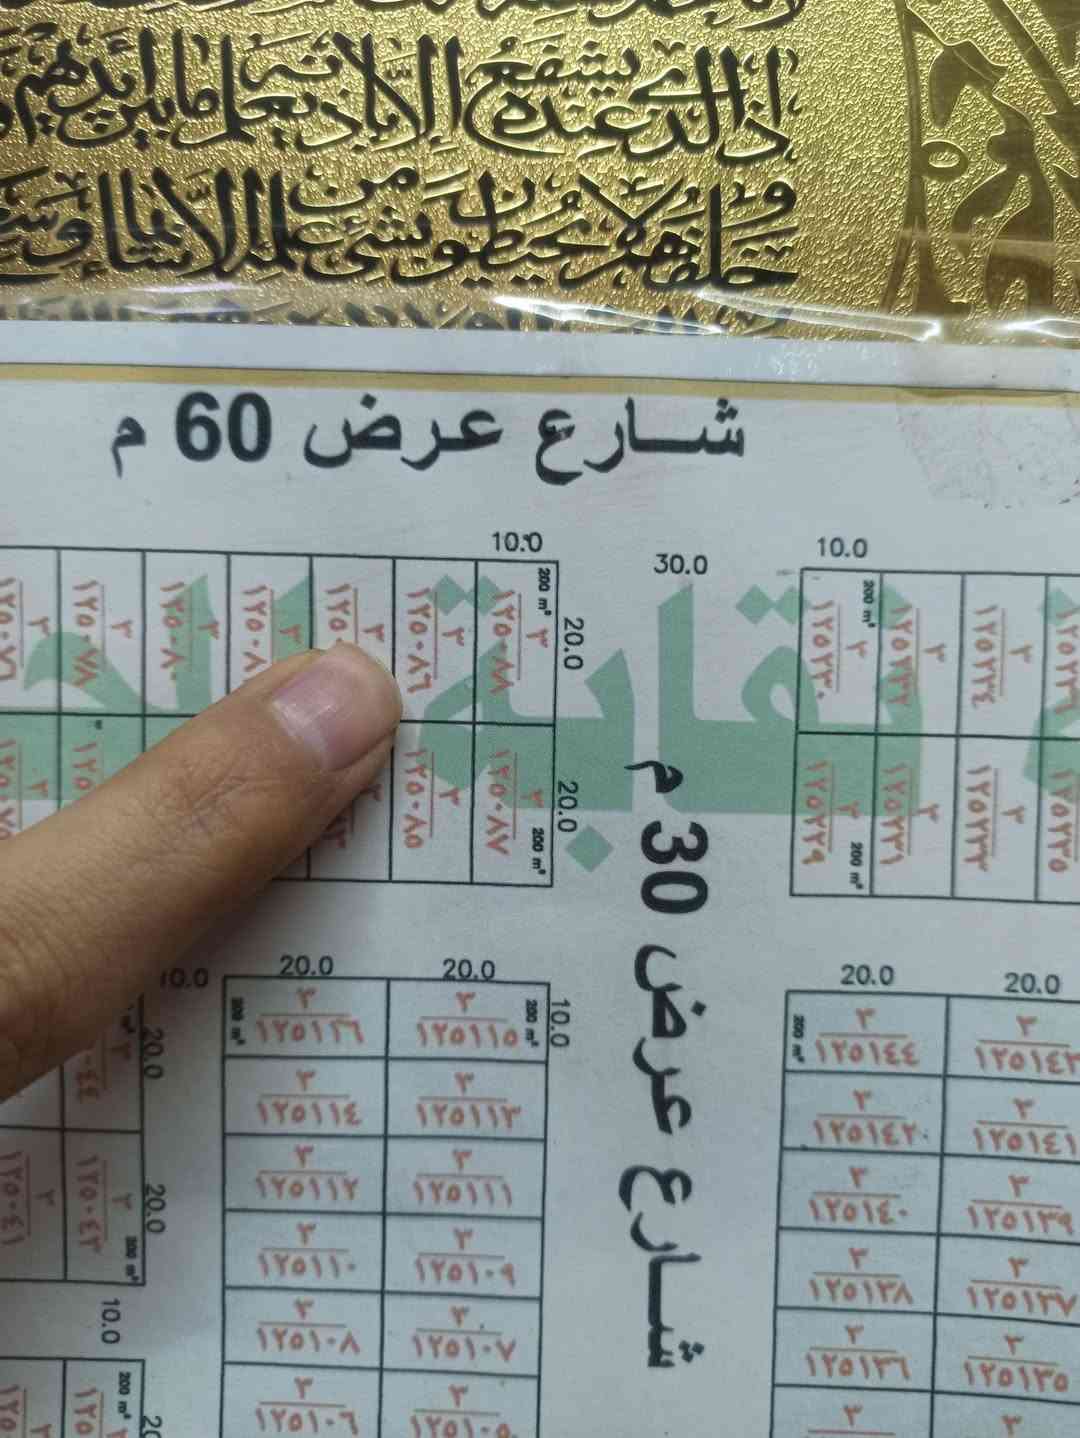 ذا الذي يشفع عنده إلا بإذنه يعلم ما بين أيديهم
وما خلفهم ولا يحيطون بشيء من علمه إلا بما شاء وسع
شارع عرض 60 م
10.0
30.0
10.0
200 m²
٣
١٢٥٠٧٨
٣
١٢٥٠٨٠
٣
١٢٥٠٨٦
٣
١٢٥٠٨٨
200 m²
20.0
٣
١٢٥٢٣٠
200 m²
٣
١٢٥٢٣٢
٣
١٢٥٢٣٤
٣
١٢٥٢٣٦
٣
١٢٥٠٨٥
٣
١٢٥٠٨٧
200 m²
20.0
٣
١٢٥٢٢٩
200 m²
٣
١٢٥٢٣١
٣
١٢٥٢٣٣
١٢٥٢٣٥
نقابة
شارع عرض 30 م
10.0
20.0
20.0
10.0
200 m²
٣
١٢٥١١٦
٣
١٢٥١١٥
200 m²
٣
١٢٥١١٤
٣
١٢٥١١٣
٣
١٢٥١١٢
٣
١٢٥١١١
٣
١٢٥١١٠
٣
١٢٥١٠٩
٣
١٢٥١٠٨
٣
١٢٥١٠٧
٣
١٢٥١٠٦
٣
20.0
20.0
200 m²
٣
١٢٥١٤٤
٣
١٢٥١٤٣
٣
١٢٥١٤٢
٣
١٢٥١٤١
٣
١٢٥١٤٠
٣
١٢٥١٣٩
٣
١٢٥١٣٨
٣
١٢٥١٣٧
٣
١٢٥١٣٦
٣
١٢٥١٣٥
٣
٣
20.0
20.0
٣
١٢٥٠٤٣
200 m²
٣
١٢٥٠٤١
10.0
200 m²